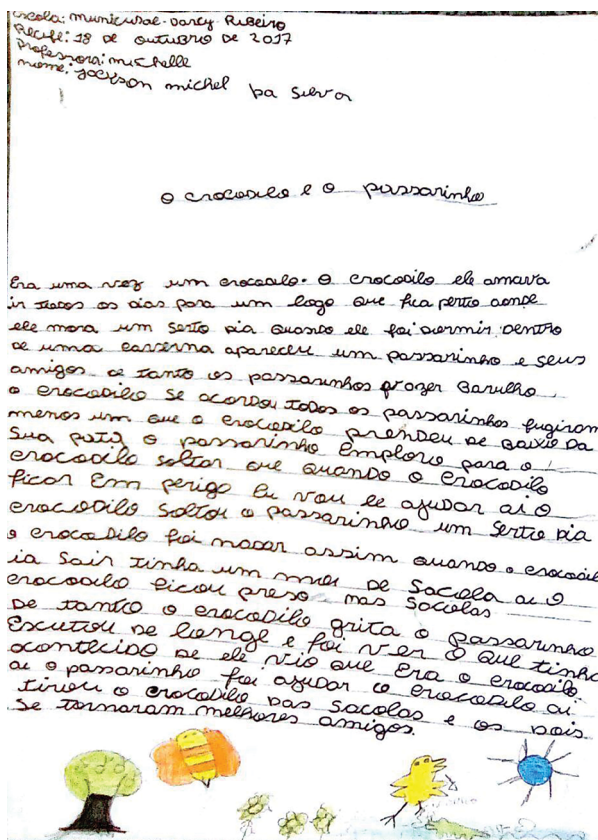 Escola: municipal Darcy Ribeiro
Recife: 18 de outubro de 2017
Professora: michelle
nome: Jackson michel da Silva
O crocodilo e o passarinho
Era uma vez um crocodilo. O crocodilo ele amava
ir todos os dias para um lago que fica perto aonde
ele mora um serto dia quando ele foi durmir dentro
de uma caverna apareceu um passarinho e seus
amigos de tanto os passarinhos fazer barulho
o crocodilo se acordou todos os passarinhos fugiram
menos um que o crocodilo prendeu de baixo da
sua pata o passarinho emploro para o
crocodilo soltar que quando o crocodilo
ficar em perigo Eu vou le ajudar ai o
crocodilo soltou o passarinho um serto dia
o crocodilo foi nadar assim quando o crocodilo
ia sair tinha um de sacola ai o
crocodilo ficou preso nas sacolas
De tanto o crocodilo grita o passarinho
Escutou de longe e foi ver o que tinha
acontecido de ele vio que Era o crocodilo
ai o passarinho foi ajudar o crocodilo ai
tirou o crocodilo das sacolas e os dois
se tornaram melhores amigos.